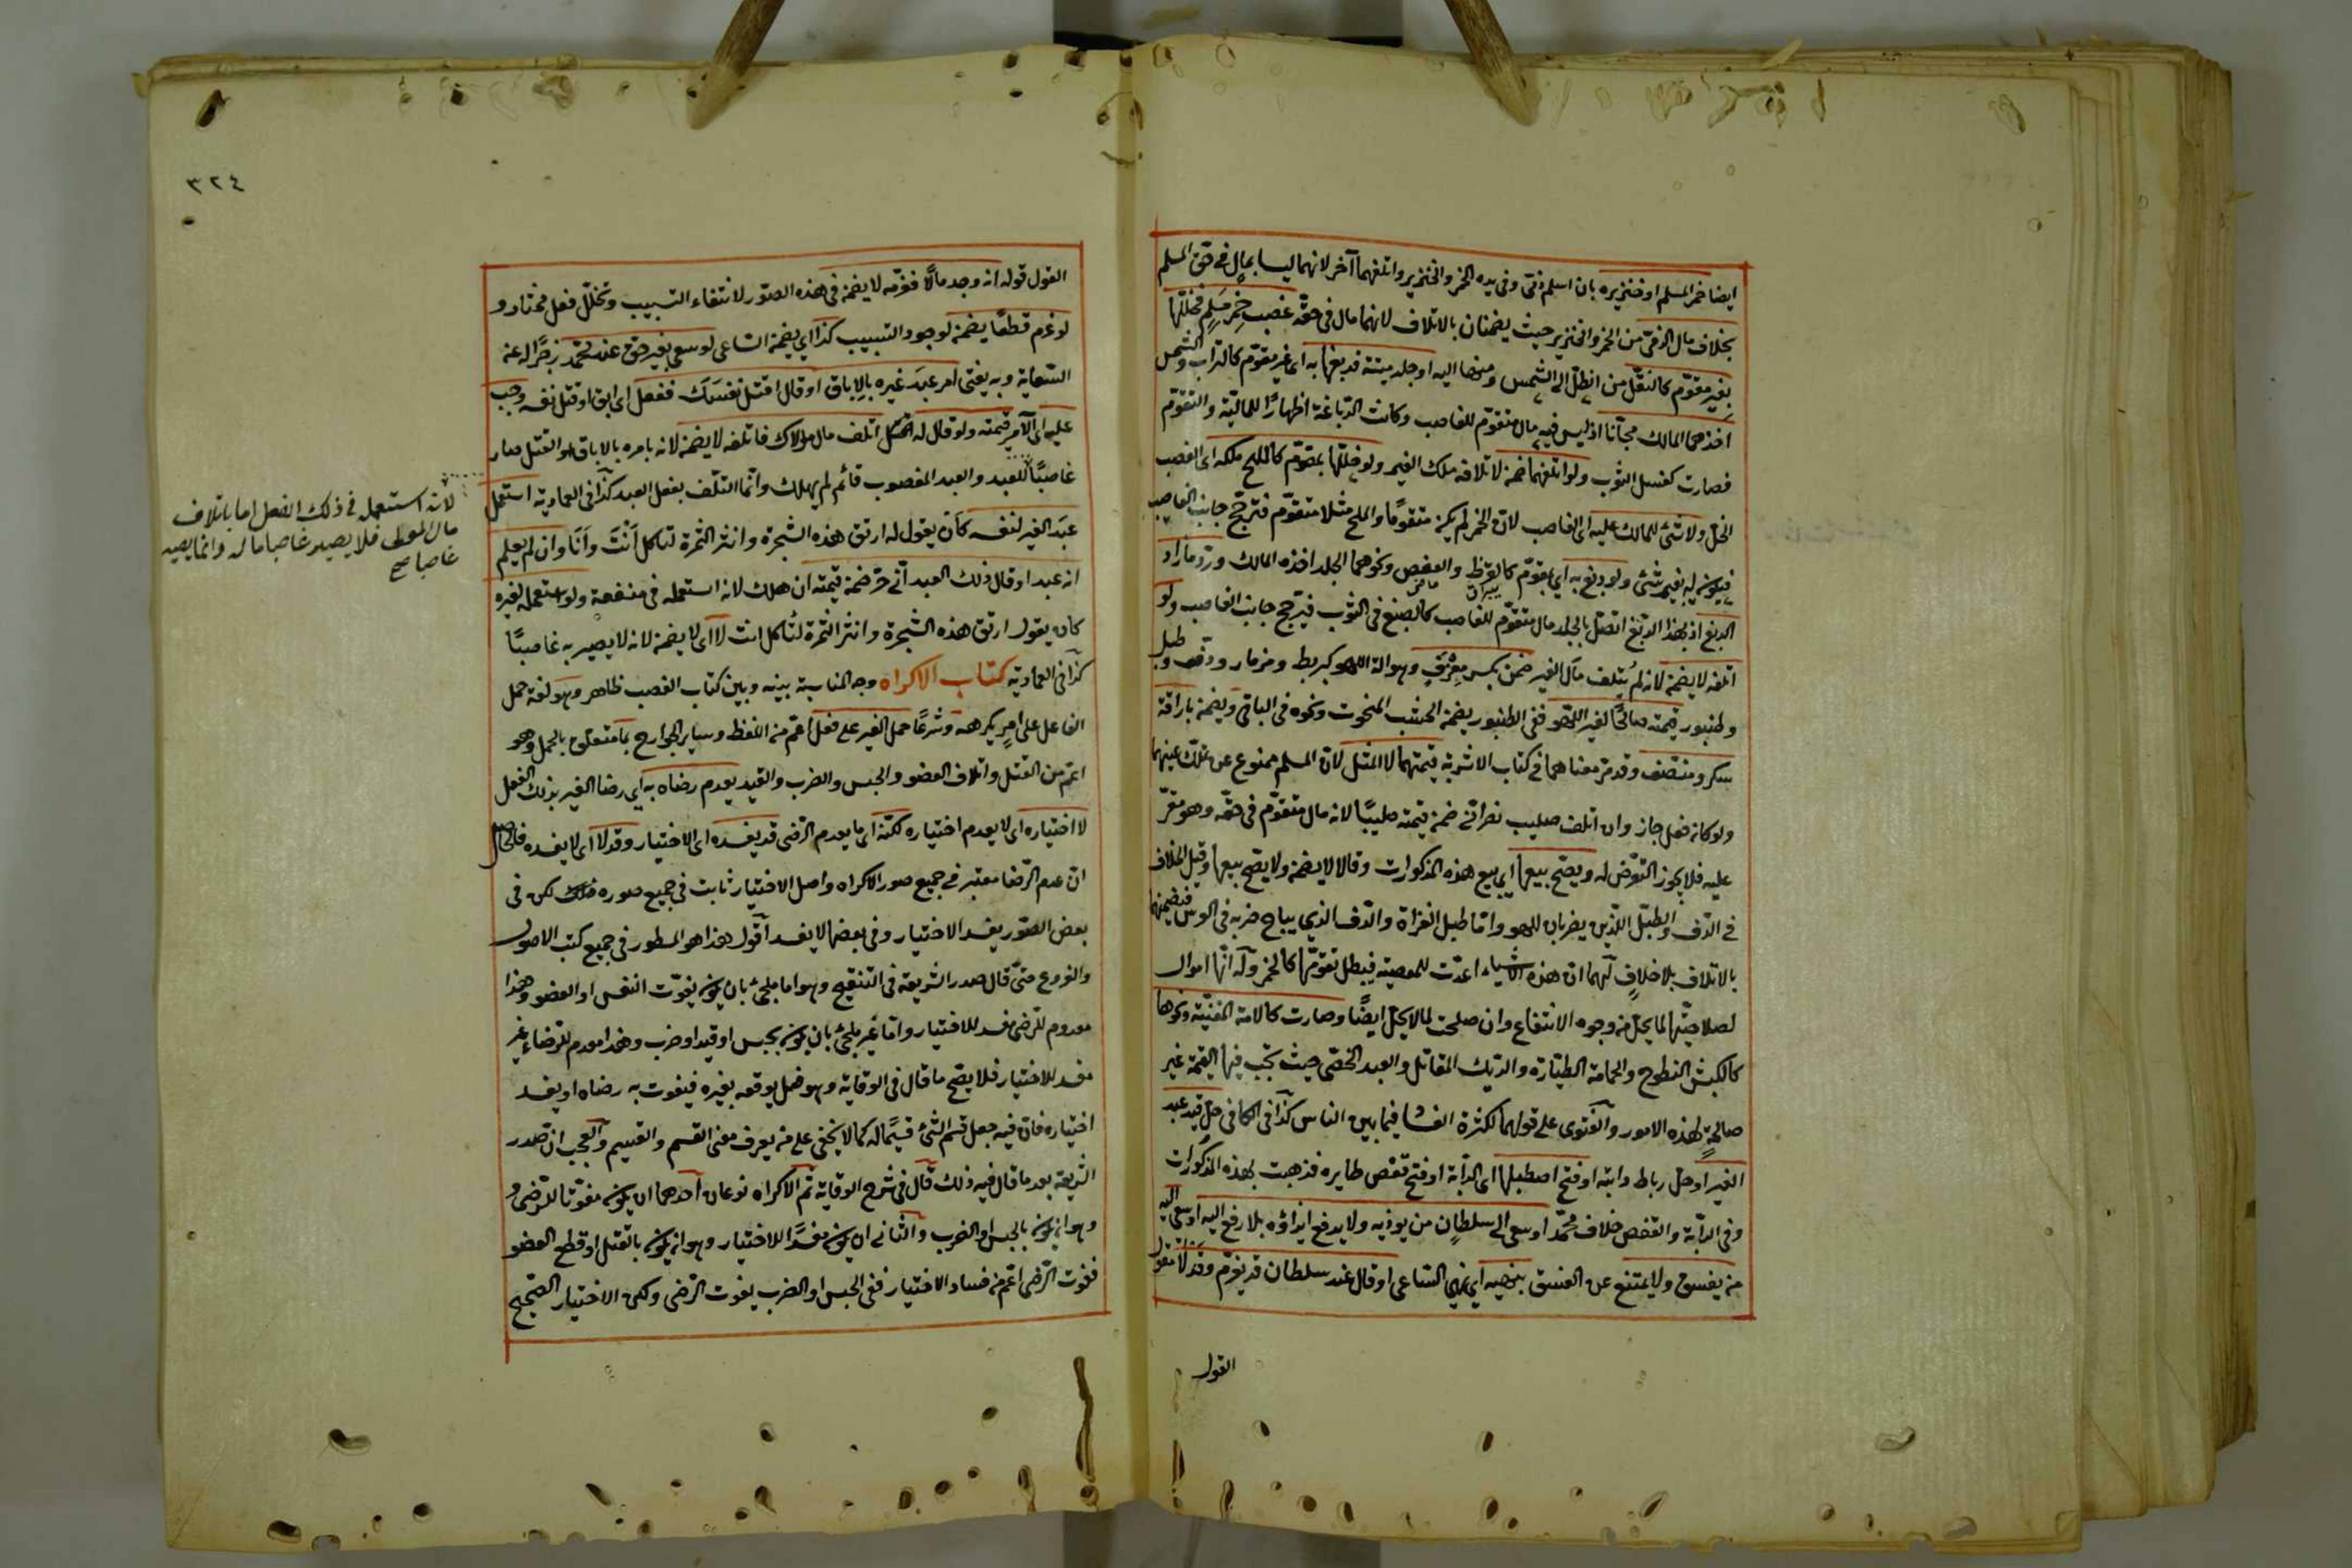 ايضا خمر المسلم او خنزيره بان اسلم ذمّى وفى يده الخمر والخنزير واتلفهما آخر لانهما ليسا بمال فى حق المسلم
بخلاف مال الذمّى من الخمر والخنزير حيث يضمنان بالاتلاف لانهما مال فى حقه غصب خمر مسلم فخلّلها
بغير متقوّم كالنقل من الظلّ الى الشمس ومنها اليه او جلد ميتة فدبغها به اى غير متقوّم كالتراب والشمس
اخذهما المالك مجّانا اذ ليس فيه مال متقوّم للغاصب وكانت الدّباغة اظهارًا للماليّة والتقوّم
فصارت كغسل الثوب ولو اتلفهما ضمن لاتلافه ملك الغير ولو خلّلها بمتقوّم كالملح ملكه اى الغاصب
الخلّ ولا شئ للمالك عليه اى الغاصب لانّ الخمر لم يكن متقومًا والملح مثلا متقوّم فترجّح جانب الغاصب
فيكون له بغير شئ ولو دبغ به اى بمتقوّم كالقرظ والعفص ونحوهما الجلد اخذه المالك وردّ ما زاد
الدبغ اذ بهذا الدّبغ اتصل بالجلد مال متقوّم للغاصب كالصبغ فى الثوب فيترجح جانب الغاصب ولو
اتلفه لا يضمن لانه لم يُتلف مال الغير ضمن بكسر مِعْزَفٍ وهو آلة اللهو كبربط ومزمار ودفّ وطبل
وطنبور قيمته صالحًا لغير اللّهو ففى الطنبور يضمن الخشب المنحوت ونحوه فى الباقى ويضمن باراقة
سكر ومنصّف وقد مرّ معناهما فى كتاب الاشربة قيمتهما لا المثل لانّ المسلم ممنوع عن تملّك عينهما
ولو كان فعل جاز وان اتلف صليب نصرانّى ضمن قيمته صليبًا لانه مال متقوّم فى حقّه وهو مقرّ
عليه فلا يجوز التعرّض له ويصّح بيعها اى بيع هذه المذكورات وقالا لا يضمن ولا يصّح بيعها وقيل الخلاف
فى الدّف والطبّل اللّذين يضربان للهو وامّا طبل الغزاة والدّف الذى يباح ضربه فى العرس فيضمنهما
بالاتلاف بلا خلافٍ لهما انّ هذه الاشياء اعدّت للمعصية فيبطل تقوّمها كالخمر وله انّها اموال
لصلاحيّتها لما يحلّ من وجوه الانتفاع وان صلحت لما لا يحلّ ايضًا وصارت كالامة المغنيّة ونحوها
كالكبش النطوح والحمامة الطيّارة والديك المقاتل والعبد الخصّى حيث تجب فيها القيمة غير
صالحةٍ لهذه الامور والفتوى على قولهما لكثرة الفساد فيما بين الناس كذا فى الكافى حلّ قيد عبد
الغير او حلّ رباط دابته او فتح اصطبلها اى الدّابة او فتح قفص طايره فذهبت بهذه المذكورات
وفى الدّابة والقفص خلاف محمّد او سعى الى سلطانٍ من يوذيه ولا يدفع ايذاؤه بلا رفع اليه او سعى اليه
من يفسق ولا يمتنع عن الفسق بنهيه اى نهى السّاعى او قال عند سلطان قد يغرّم وقد لا مقول
القول
٣٢٤
القول قوله انه وجد مالًا فغرّمه لا يضمن فى هذه الصّور لانتفاء التسبيب وتخلّل فعل مختار و
لو غرم قطعًا يضمن لوجود التسبيب كذا اى يضمن السّاعى لو سعى بغير حقّ عند محمّد زجرًا له عن
السّعاية وبه يفتى امر عبد غيره بالِاباق او قال اقتل نفسك ففعل اى ابق او قتل نفسه وجب
عليه اى الآمر قيمته ولو قال له اتلف مال مولاك فاتلفه لا يضمن لانه بامره بالاباق او القتل صار
غاصبًا للعبد والعبد المغصوب قائم لم يهلك وانّما التلف بفعل العبد كذا فى العماديّة استعمل
عبَد الغير لنفسه كان يقول له ارتق هذه الشجرة وانثر الثمرة لتاكل اَنْتَ واَنَا وان لم يعلم
انه عبد او قال ذلك العبد انّى حرّ ضمن قيمته ان هلك لانه استعمله فى منفعته ولو استعمله لغيره
كان يقول ارتق هذه الشجرة وانثر الثمرة لتاكل انت لا اى لا يضمن لانه لا يصير به غاصبًا
كذا فى العماديّة كتاب الاكراه وجه المناسبة بينه وبين كتاب الغصب ظاهر وهو لغة حمل
الفاعل على امرٍ يكرهه وشرعًا حمل الغير على فعلٍ اعمّ من اللفظ وساير الجوارح بما متعلّق بالحمل وهو
اعمّ من القتل واتلاف العضو والحبس والضرب والقيد يعدم رضاه به اى رضا الغير بذلك الفعل
لا اختياره اى لا يعدم اختياره لكنّه اى ما يعدم الرّضى قد يفسده اى الاختيار وقد لا اى لا يفسده فالحاصل
انّ عدم الرّضا معتبر فى جميع صور الاكراه واصل الاختيار ثابت فى جميع صوره لكن فى
بعض الصّور يفسد الاختيار وفى بعضها لا يفسد اقول هذا هو المسطور فى جميع كتب الاصول
والفروع حتّى قال صدر الشريعة فى التنقيح وهو اما ملجئ بان يكون بفوّت النفس او العضو وهذا
معدوم للرّضى مفسد للاختيار وامّا غير ملجئ بان يكون بحبس او قيد او ضرب وهذا معدم للرّضاء غير
مفسد للاختيار فلا يصّح ما قال فى الوقاية وهو فعل يوقعه بغيره فيفوت به رضاه او يفسد
اختياره فانّ فيه جعل قسم الشئ قسيًما له كما لا يخفى على من يعرف معنى القسم والقسيم والعجب انّ صدر
الشّريعة بعد ما قال فيه ذلك قال فى شرح الوقاية ثم الاكراه نوعان احدهما ان يكون مفوّتا للرّضى و
وهو ان يكون بالحبس او الضرب والثّانى ان يكون مفسدًا للاختيار وهو ان يكون بالقتل او قطع العضو
ففوت الرّضى اعمّ من فساد الاختيار ففى الحبس او الضرب يفوت الرّضى ولكن الاختيار الصّحيح
لانه استعمله فى ذلك الفعل اما باتلاف
مال المولى فلا يصير غاصبا ماله وانما يصير
غاصبا صح